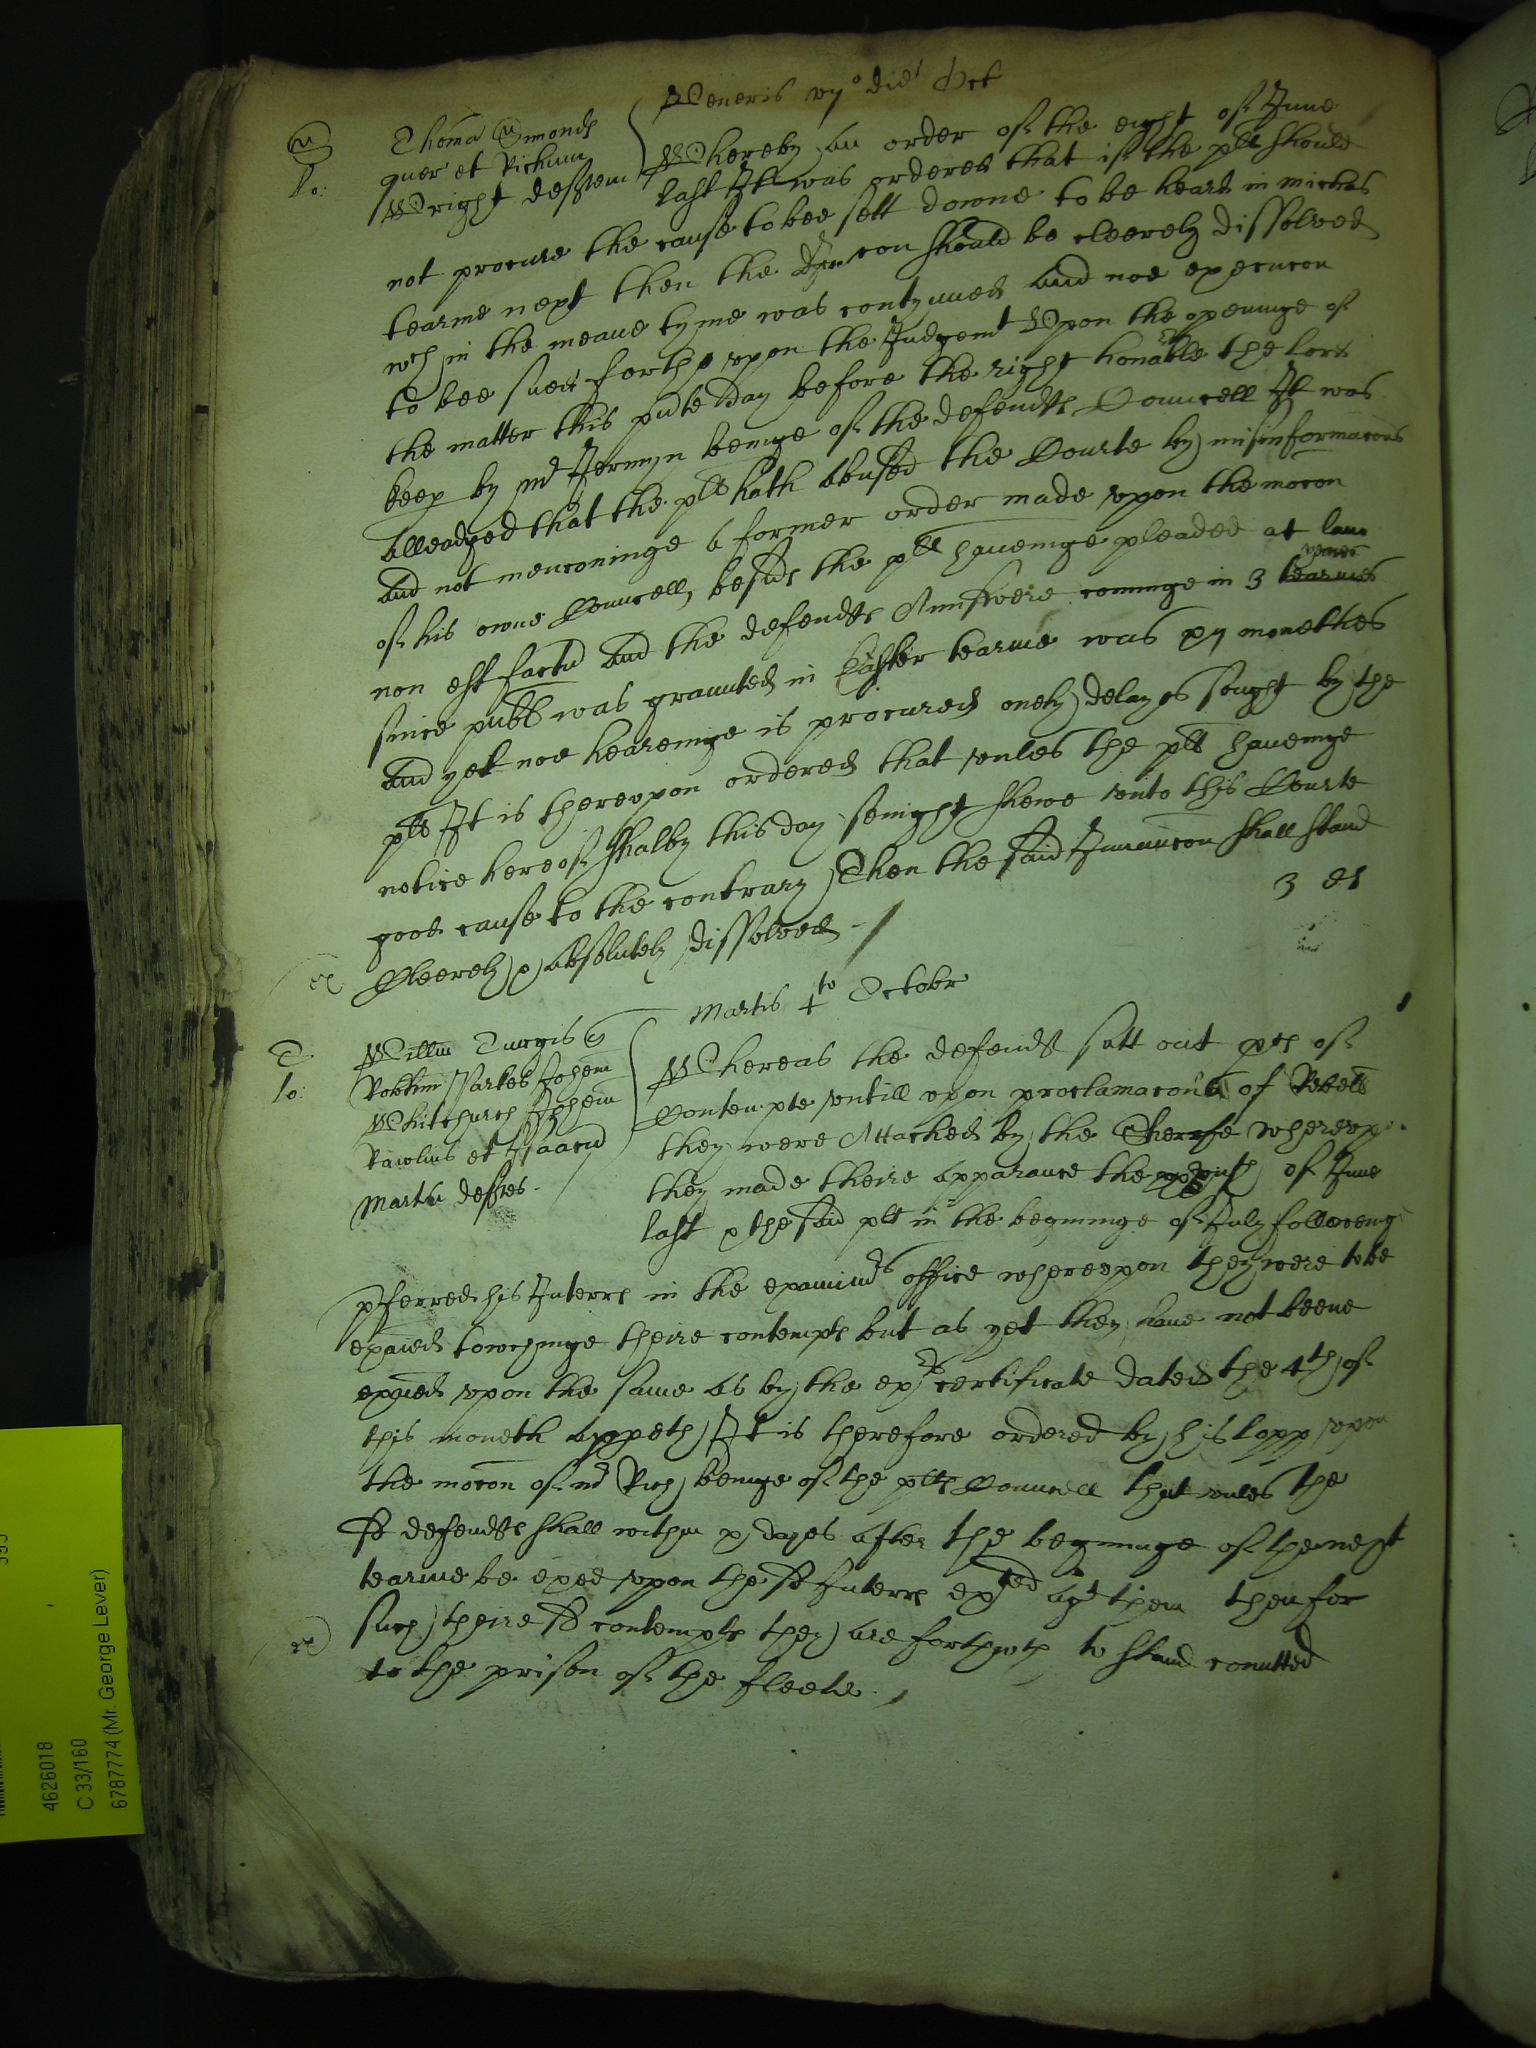 Veneris vijo die Oct
S
lo:
Thoma Simonds
quer et Richum
Wright defftem
Whereby an order of the eight of June
last It was ordered that if the plt should
not procure the cause to bee sett downe to be heard in Michas
tearme next then the Iniuncon should be cleerely dissolved
wch in the meane tyme was contynued And noe execucon
to bee sued forthe upon the Judgemt Upon the openinge of
the matter this pnte day before the right honable the lord
keep by mr Jermyn beinge of the defendts Councell It was
Alleadged that the plt hath Abused the Courte by misinformacons
And not mencioninge A former order made upon the mocon
of his owne Councell, besids the plt haveinge pleaded at law
non est factu And the defendts Answere cominge in 3 yeares
since publ was graunted in Easter tearme was xij monethes
And yet noe heareinge is procured onely delayes sought by the
plt It is thereupon ordered that unles the plt haveinge
notice hereof shalby this day senight shewe unto this Courte
good cause to the contrary Then the said Iniuncon shall stand
Cleerely & absolutely dissolved
3 et
ex
Martis 4to Octobr
T
lo:
Willm Turgis q
Robtum Parkes Johem
Whitchurch Johem
Rawlins et Isaacu
Martin deftes
Whereas the defendts satt out pces of
Contempte untill upon proclamacon of Rebell
they were Attached by the Sherife whereupo
they made theire apparance the of June
last & the said plt in the beginninge of July followeng
pferred his Interrs in the examinrs office whereupon they were to be
exaied towchinge theire contempts but as yet they have not beene
exaied upon the same as by the exrs certificate dated the 4th of
this moneth appeth It is therefore ordered by his lopp upon
the mocon of mr Rich beinge of the plts Councell that unles the
sd defendts shall within x dayes after the beginninge of the next
tearme be exaed upon the sd Interrs exted agt them then for
such theire sd contempts they are forthwth to stand comitted
to the prison of the fleete
ex
4626018
C 33/160
6787774 (Mr. George Lever)